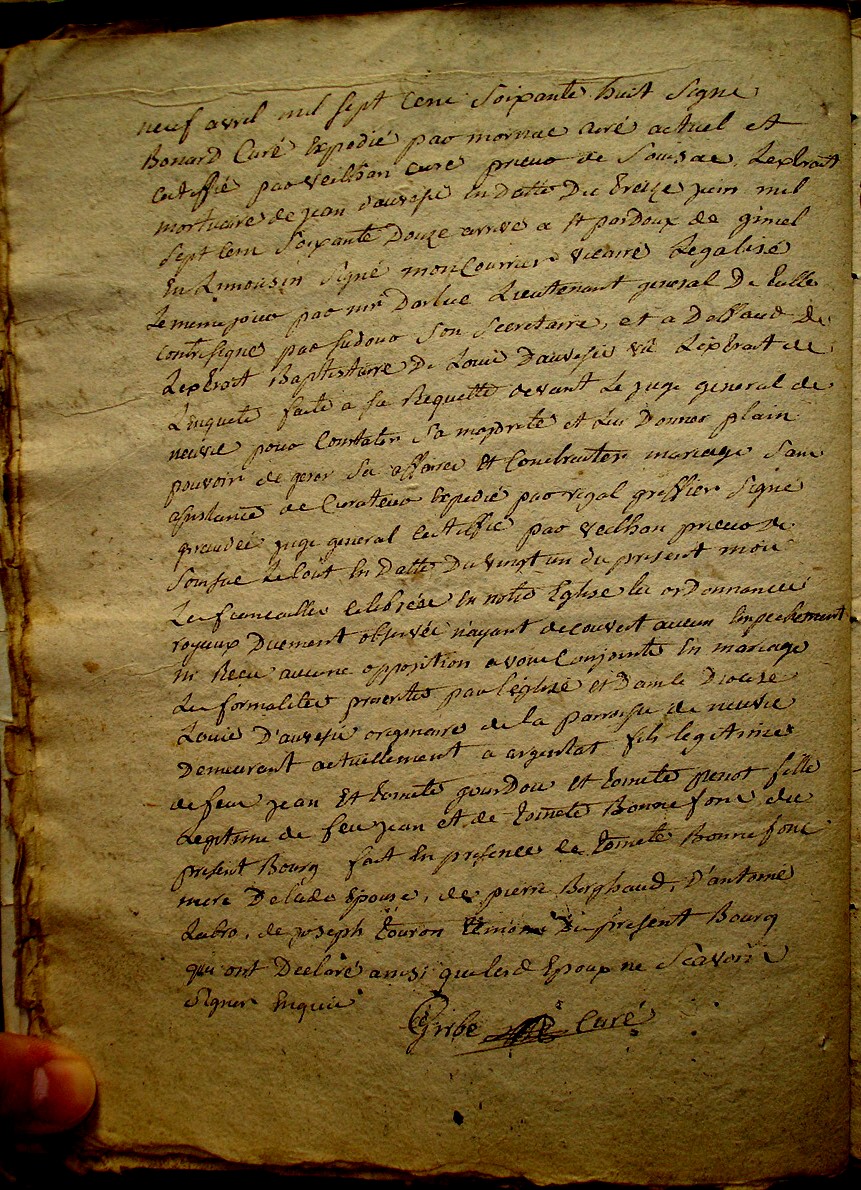 neuf avril mil sept cent soixante huit signé
Bonard Curé Expedié par mornac curé actuel et
certiffié par veilhan curé prieur de Soursac, Lextrait
mortuaire de jean d'auvesie en datte du treize juin mil
sept cent soixante douze arrivé a st pardoux de gimel
En Limousin signé moncourrier vicaire Legalisé
Le meme jour par mr Darluc Lieutenant general De tulle
contresigné par sudour son secretaire, et a Deffaud De
Lextrait Baptistaire De Louis Dauvesie vû Lextrait de
L'enquete faite a sa Requette devant Le juge general de
neuvic pour Constater sa majorité et Lui Donner plain
pouvoir de gerer ses affaires et Contracter mariage sans
assistance de Curateur Expedié par vigal greffier signé
juge general certiffié par veilhan prieur de
Soursac Le tout En Datte Du vingt un du present mois
Les fiancailles celebrées En notre Eglise les ordonnances
royaux Duement observées n'ayant decouvert aucun Empechement
ni Recu aucune opposition avons Conjoints En mariage
Les formalites prescrites par l'église et Dans le Diocese
Louis D'auvesie originaire de la parroisse de neuvic
Demeurant actuellement a argentat fils legitime
de feu jean Et toinete gourdon et toinete penot fille
Legitime de feu jean et de toinete Bonnefont du
present Bourg fait En presence de toinete Bonnefont
mere De lade Epouse, de pierre Berghaud, d'antoine
Labro, de joseph touron temoins Du present Bourg
qui ont Declaré ainsi que lesd Epoux ne scavoir
signer Enquis
Gribe Curé